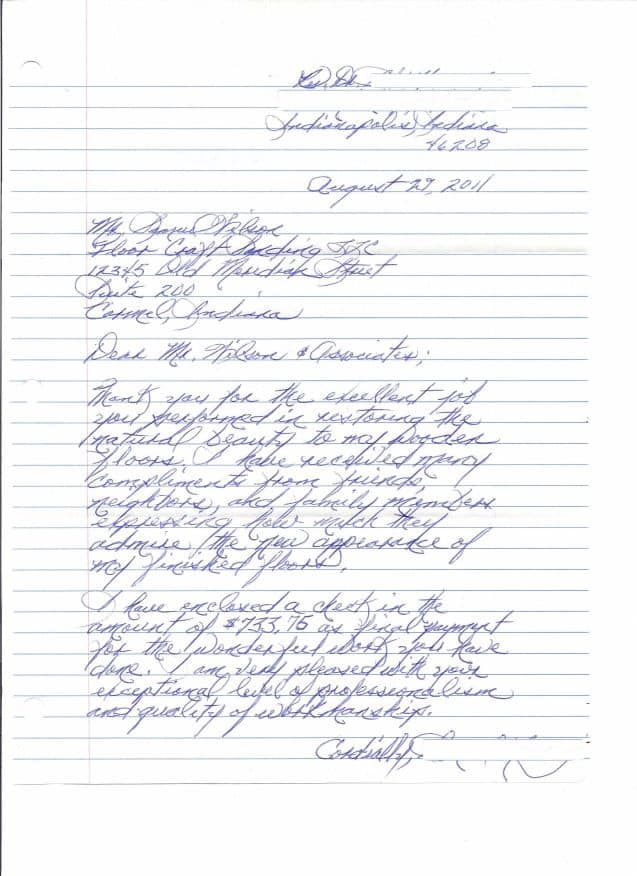 Rev. Dr.
Indianapolis, Indiana
46208
August 29, 2011
Mr. Samuel Wilson
Floor Craft Sanding LLC
12345 Old Meridian Street
Suite 200
Carmel, Indiana
Dear Mr. Wilson & Associates;
Thank you for the excellent job
you performed in restoring the
natural beauty to my wooden
floors. I have received many
compliments from friends,
neighbors, and family members
expressing how much they
admire the new appearance of
my finished floors.
I have enclosed a check in the
amount of $733.75 as final payment
for the wonderful work you have
done. I am very pleased with your
exceptional level of professionalism
and quality of workmanship.
Cordially,